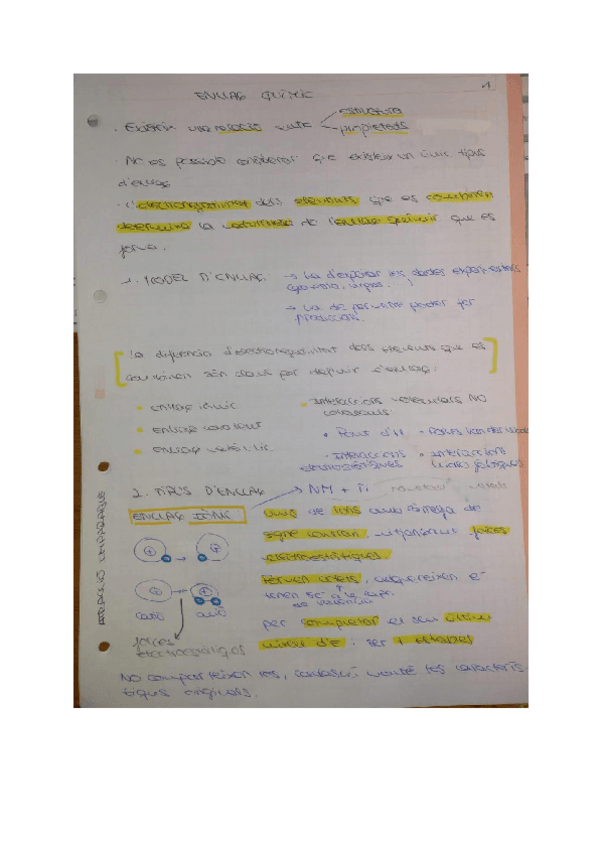 ENLLAÇ QUÍMIC
1
estructura
· Existeix una relació entre
propietats
· No es possible considerar que existeix un únic tipus
d'enllaç
· L'electronegativitat dels elements que es combinen
determina la naturalesa de l'enllaç químic que es
forma.
1. MODEL D'ENLLAÇ
→ Ha d'explicar les dades experimentals
→ Ha de permetre poder fer
prediccions.
La diferència d'electronegativitat dels elements que es
combinen són claus per definir l'enllaç:
· enllaç iònic
· enllaç covalent
· enllaç metàl·lic
· Interaccions NO
covalents:
· Pont d'H
· Forces
· Interaccions
electrostàtiques
· Interaccions
2. TIPUS D'ENLLAÇ
NM +
ENLLAÇ IÒNIC
Unió de ions amb càrrega de
signe contrari, mitjançant forces
electrostàtiques
Formen, adquireixen e-
per completar el seu últim
nivell d'e-: ser + estables
+
+
catió
anió
forces
electrostàtiques
No comparteixen res, cadascú manté les caracterís-
tiques originals.